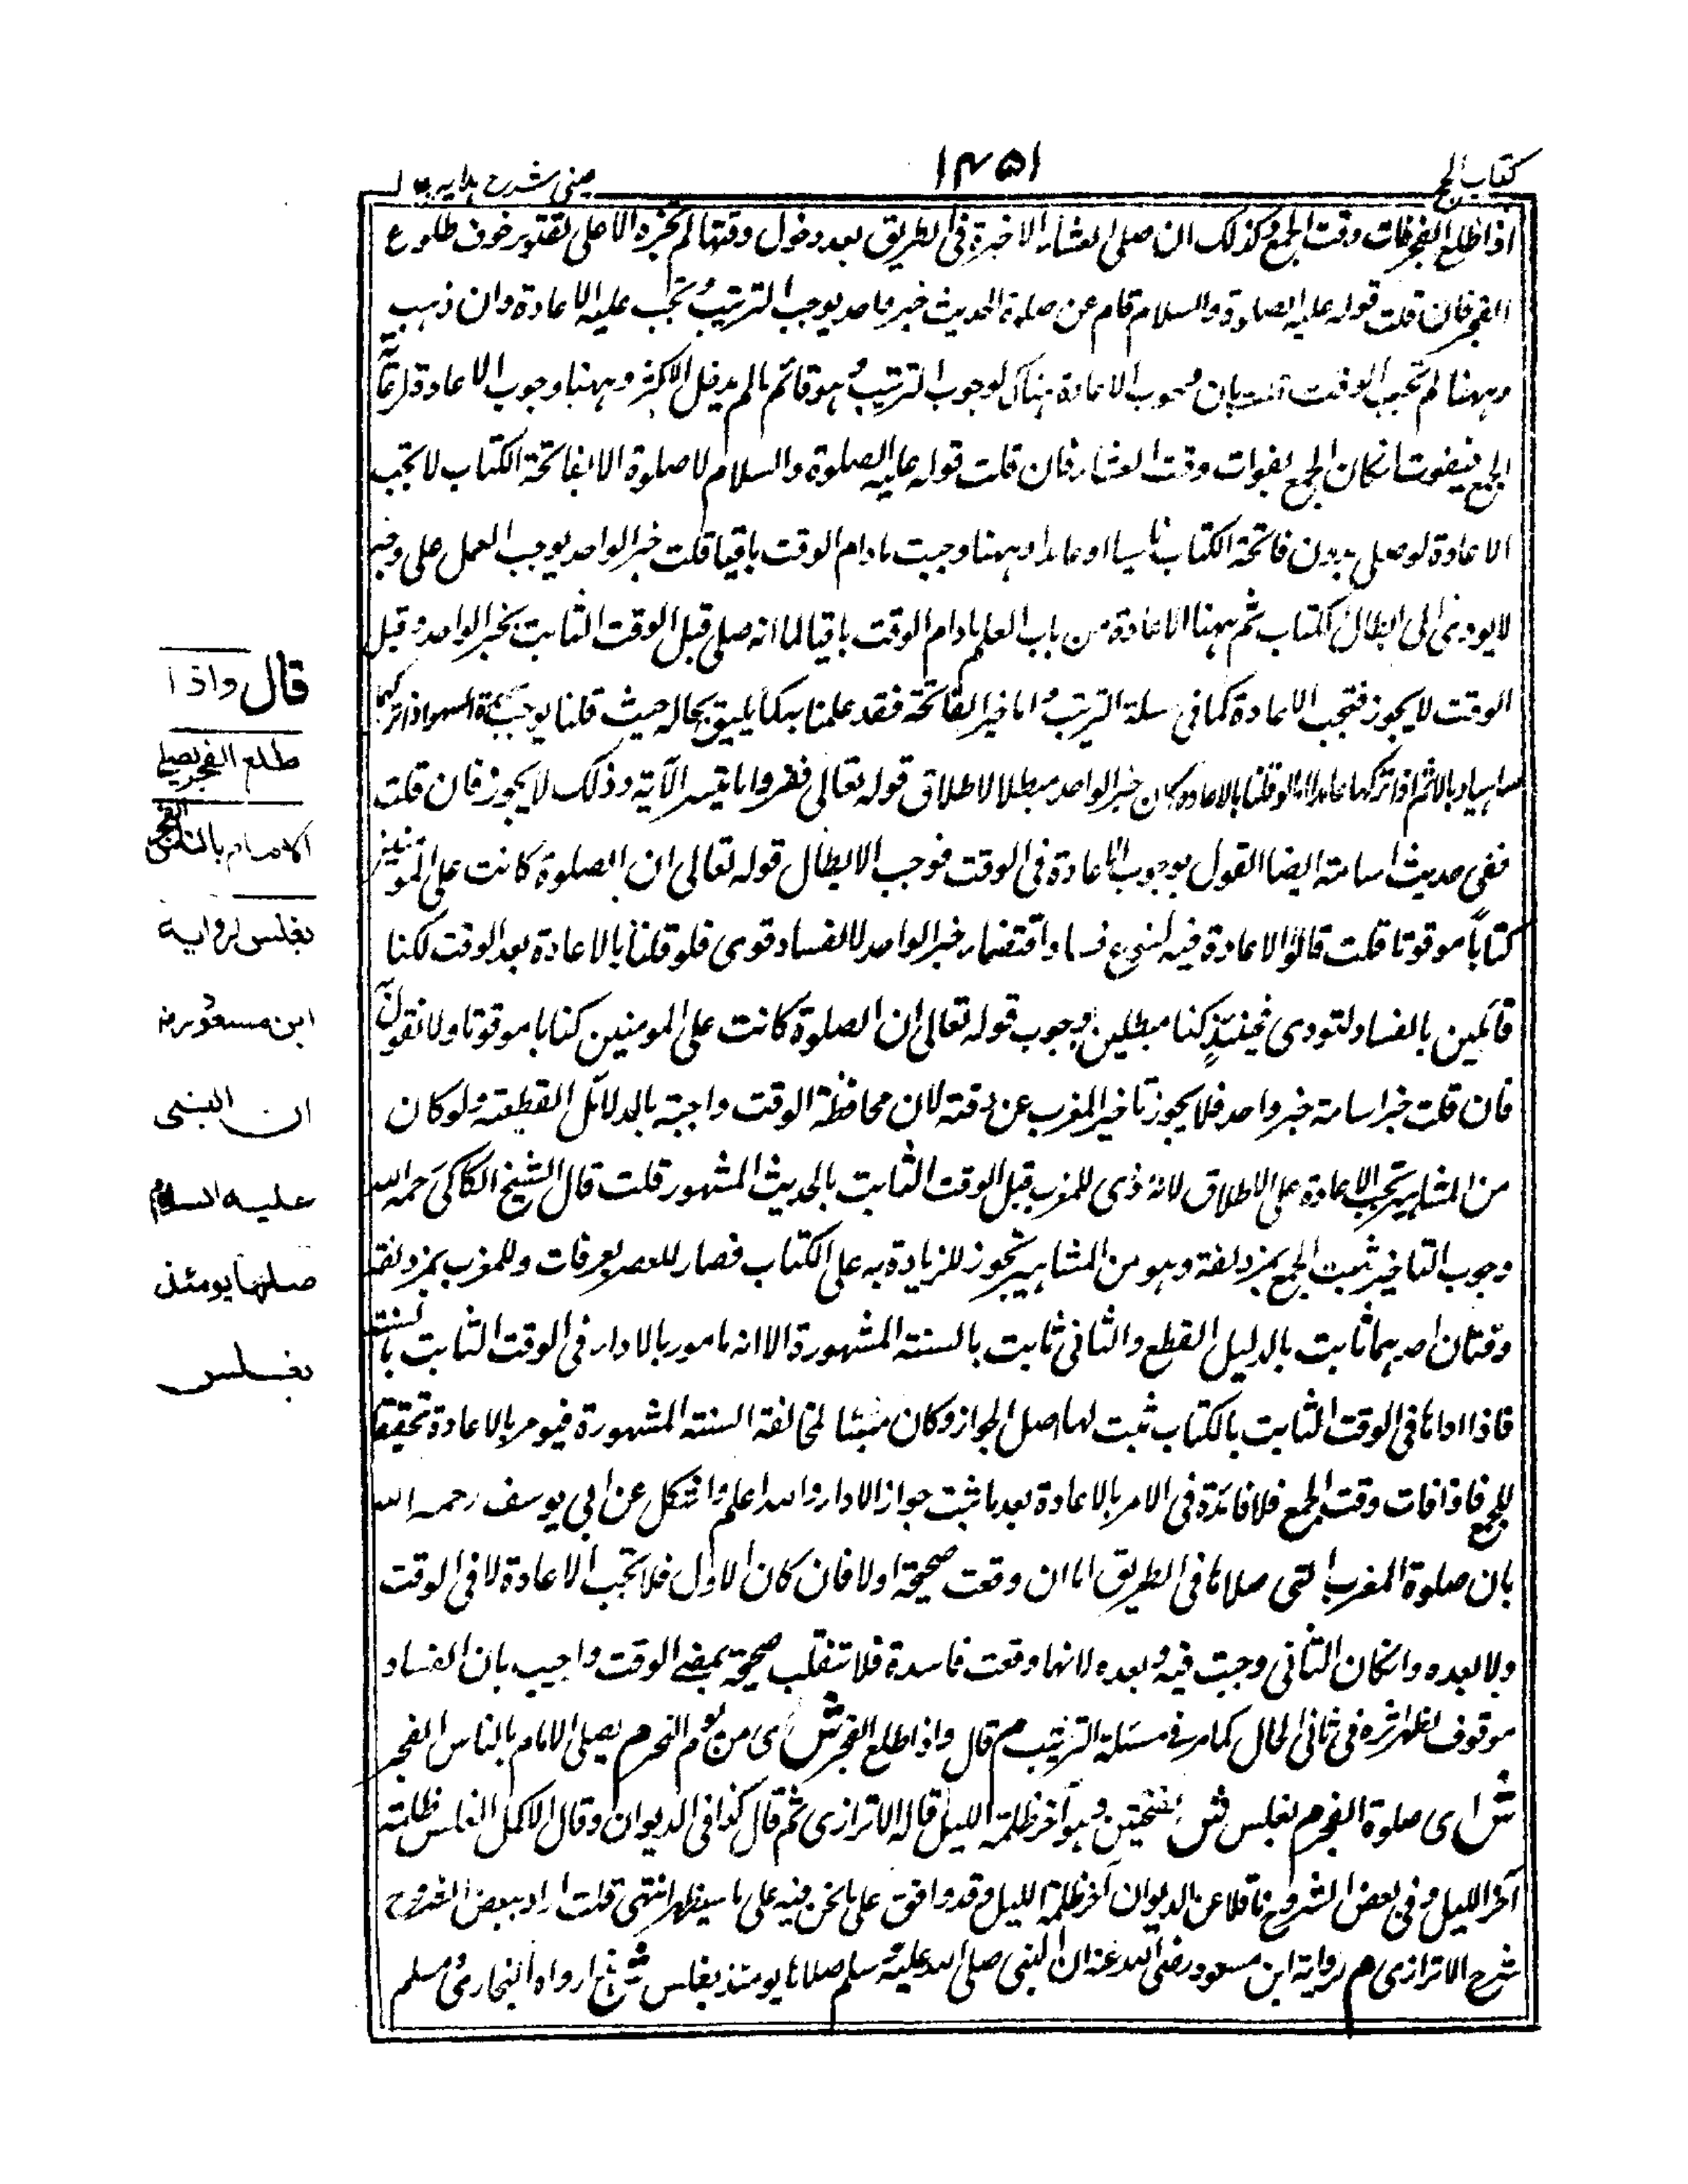 كتاب الحج
١٤٥١
عينى شرح هدايه ج ١
اذا طلع الفجر فات وقت الجمع وكذلك ان صلى العشاء الاخيرة فى الطريق بعد دخول وقتها لم يجزه الا على تقدير خوف طلوع
الفجر فان قلت قوله عليه الصلوة والسلام قام عن صلوة الحديث خبر واحد يوجب الترتيب و تجب عليه الاعادة وان ذهب
وههنا لم تجب الوقت قلت بان وجوب الاعادة هناك لوجوب الترتيب و هو قائم ما لم يدخل الاكثر وههنا وجوب الاعادة لرعاية
الجمع فيفوت امكان الجمع بفوات وقت العشاء فان قلت قوله عليه الصلوة والسلام لا صلوة الا بفاتحة الكتاب لا تجب
الاعادة لو صلى بدون فاتحة الكتاب ناسيا او عامدا وههنا وجبت مادام الوقت باقيا قلت خبر الواحد يوجب العمل على وجه
لا يودى الى ابطال الكتاب ثم ههنا الاعادة من باب العلم مادام الوقت باقيا لما انه صلى قبل الوقت الثابت بخبر الواحد وقبل
الوقت لا يجوز فتجب الاعادة كما فى مسلة الترتيب و اما خبر الفاتحة فقد علمنا به كما يليق بحاله حيث قلنا يوجب سجدة السهو اذا تركها
ساهيا و بالاثم اذا تركها عامدا اذ لو قلنا بالاعادة كان خبر الواحد مبطلا لاطلاق قوله تعالى فاقروا ما تيسر الآية وذلك لا يجوز فان قلت
ففى حديث اسامة ايضا القول بوجوب الاعادة فى الوقت فوجب الابطال قوله تعالى ان الصلوة كانت على المومنين
كتابا موقوتا قلت قالوا الاعادة فيه لنوع فساد واقتضاء خبر الواحد لا لفساد قوى فلو قلنا بالاعادة بعد الوقت لكنا
قائلين بالفساد لتودى فحينئذ كنا مبطلين وجوب قوله تعالى ان الصلوة كانت على المومنين كتابا موقوتا ولا نقول به
فان قلت خبر اسامة خبر واحد فلا يجوز تاخير المغرب عن وقته لان محافظة الوقت واجبة بالدلائل القطعته ولو كان
من المشاهير تجب الاعادة على الاطلاق لانه ادى للمغرب قبل الوقت الثابت بالحديث المشهور قلت قال الشيخ الكاكى رحمه الله
وجوب التاخير ثبت الجمع بمزدلفة وهو من المشاهير تجوز للزيادة به على الكتاب فصار للعصر بعرفات وللمغرب بمزدلفة
وقتان احدهما ثابت بالدليل القطع والثانى ثابت بالسنته المشهورة الا انه مامور بالاداء فى الوقت الثابت بالسنته
فاذا اداها فى الوقت الثابت بالكتاب ثبت لها اصل الجواز وكان لمخالفة السنته المشهورة فيومر بالاعادة تحقيقا
للجمع فاذا فات وقت الجمع فلا فائدة فى الامر بالاعادة بعد ما ثبت جواز الاداء والله اعلم واشكل عن ابى يوسف رحمه الله
بان صلوة المغرب التى صلاها فى الطريق اما ان وقعت صحيحة اولا فان كان الاول فلا تجب الاعادة لا فى الوقت
ولا بعده وان كان الثانى وجبت فيه و بعده لانها وقعت فاسدة فلا تنقلب صحيحة بمضى الوقت واجيب بان الفساد
موقوف لظهر اثره فى ثانى الحال كما مر فى مسئلة الترتيب م قال واذا طلع الفجر ش اى من يوم النحر م يصلى الامام بالناس الفجر
ش اى صلوة الفجر م بغلس ش بفتحتين و هو آخر ظلمة الليل قاله الاترازى ثم قال كذا فى الديوان وقال الاكمل الغلس ظلمته
آخر الليل و فى بعض الشروح ناقلا عن الديوان آخر ظلمة الليل وقد وافق على ما نحن فيه على ما سيظهر انتهى قلت اراد ببعض الشروح
شرح الاترازى م لرواية ابن مسعود رضى الله عنه ان النبى صلى الله عليه وسلم صلاها يومئذ بغلس ش رواه البخارى و مسلم
قال واذا
طلع الفجر يصلى
الامام بالناس الفجر
بغلس لرواية
ابن مسعود رضـ
ان النبى
عليه السلام
صلها يومئذ
بغلس